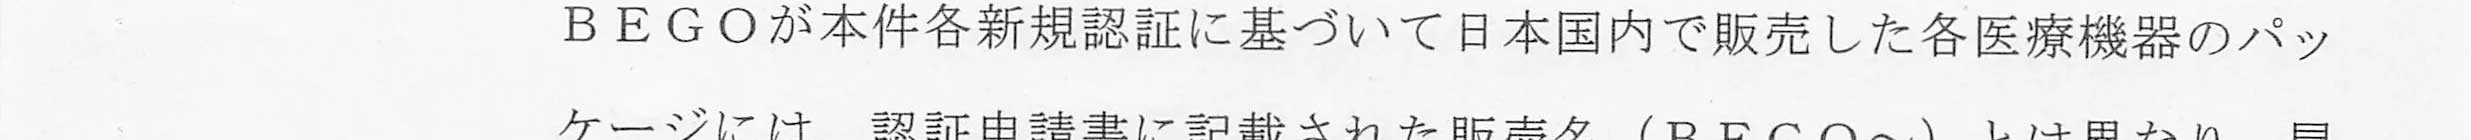 ＢＥＧＯが本件各新規認証に基づいて日本国内で販売した各医療機器のパッ
ケージには、認証申請書に記載された販売名（ＢＥＧＯ～）とは異なり、